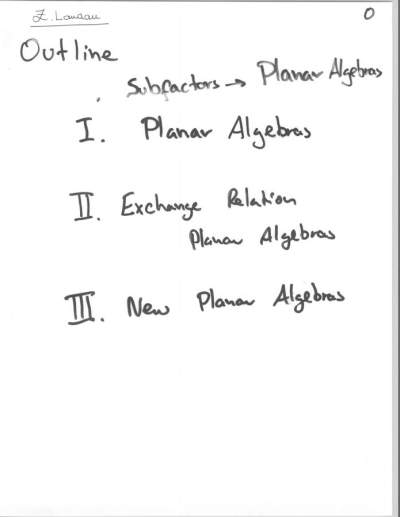 Z. Landau
0
Outline
Subfactors → Planar Algebras
I. Planar Algebras
II. Exchange Relation
Planar Algebras
III. New Planar Algebras